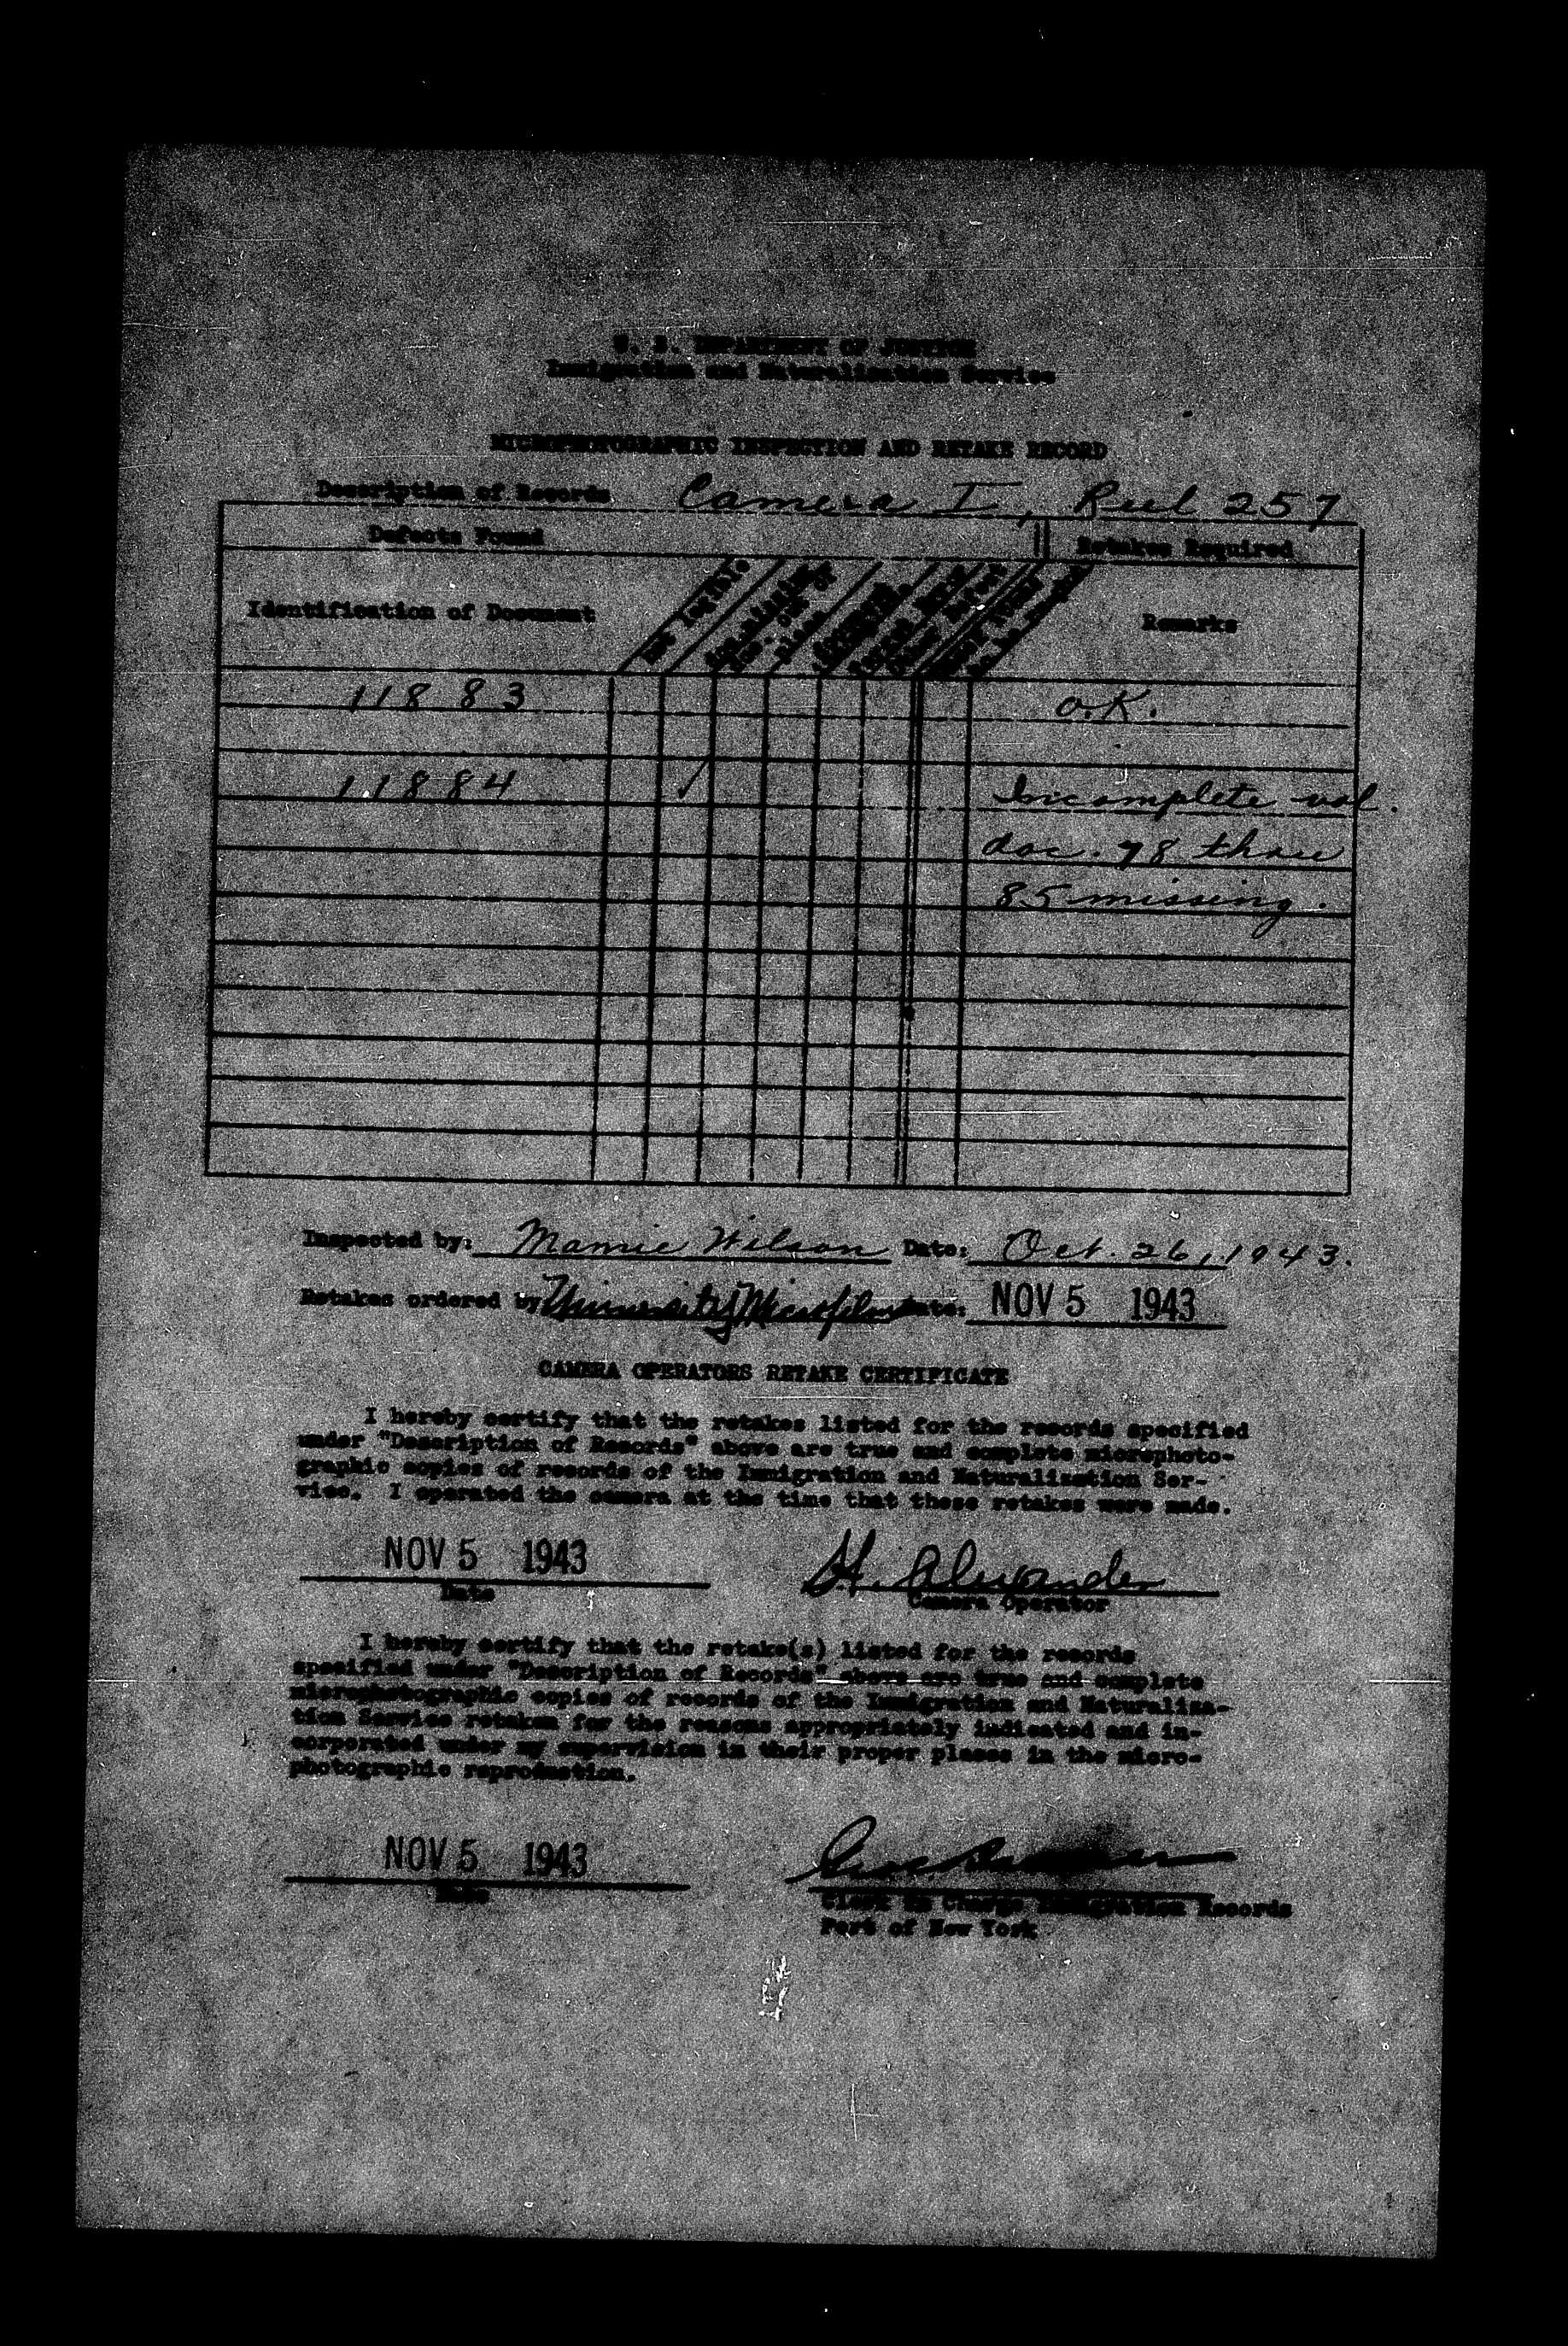 U. S. DEPARTMENT OF JUSTICE
Immigration and Naturalization Service
MICROPHOTOGRAPHIC INSPECTION AND RETAKE RECORD
Description of Records Camera I, Reel 257
Defects Found Retakes Required
Identification of Document Not legible Remarks
11883 O.K.
11884 ✓ Incomplete vol.
doc. 78 thru
85 missing.
Inspected by: Mamie Wilson Date: Oct. 26, 1943.
Retakes ordered by University Microfilms Date: NOV 5 1943
CAMERA OPERATORS RETAKE CERTIFICATE
I hereby certify that the retakes listed for the records specified
under "Description of Records" above are true and complete microphoto-
graphic copies of records of the Immigration and Naturalization Ser-
vice. I operated the camera at the time that these retakes were made.
NOV 5 1943 H. Alexander
Date Camera Operator
I hereby certify that the retake(s) listed for the records
specified under "Description of Records" above are true and complete
microphotographic copies of records of the Immigration and Naturaliza-
tion Service retaken for the reasons appropriately indicated and in-
corporated under my supervision in their proper places in the micro-
photographic reproduction.
NOV 5 1943
Date Clerk in Charge Immigration Records
Port of New York